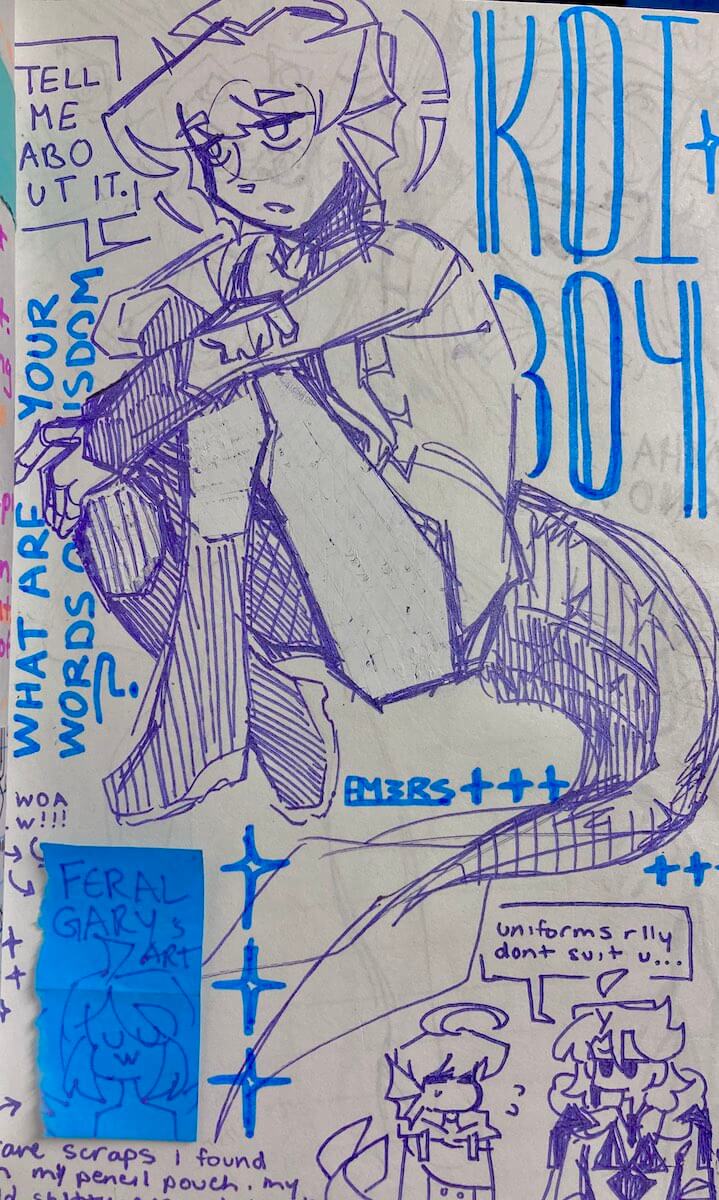 TELL
ME
ABO
UT IT.
KOI
304
WHAT ARE YOUR
WORDS
?
EM3RS+++
WOA
W!!!
FERAL
GARY's
ART
uniforms rlly
dont suit u...
scraps i found
my pencil pouch. my